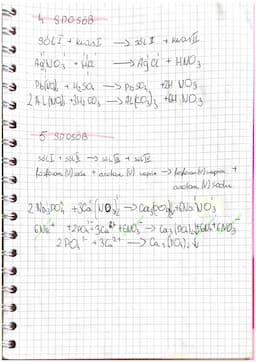 4 SPOSÓB
sól I + kwas I → sól II + kwas II
AgNO₃ + HCl → AgCl + HNO₃
Pb(NO₃)₂ + H₂SO₄ → PbSO₄ + 2H NO₃
2 Al(NO₃)₃ + 3H₂CO₃ → Al₂(CO₃)₃ + 6H NO₃
5 SPOSÓB
sól I + sól II → sól III + sól IV
fosforan (V) sodu + azotan (V) wapnia → fosforan (V) wapnia +
azotan (V) sodu
2 Na₃PO₄ + 3Ca(NO₃)₂ → Ca₃(PO₄)₂ + 6Na NO₃
6Na⁺ + 2PO₄³⁻ + 3Ca²⁺ + 6NO₃⁻ → Ca₃(PO₄)₂ + 6Na⁺ + 6NO₃⁻
2 PO₄³⁻ + 3Ca²⁺ → Ca₃(PO₄)₂ ↓